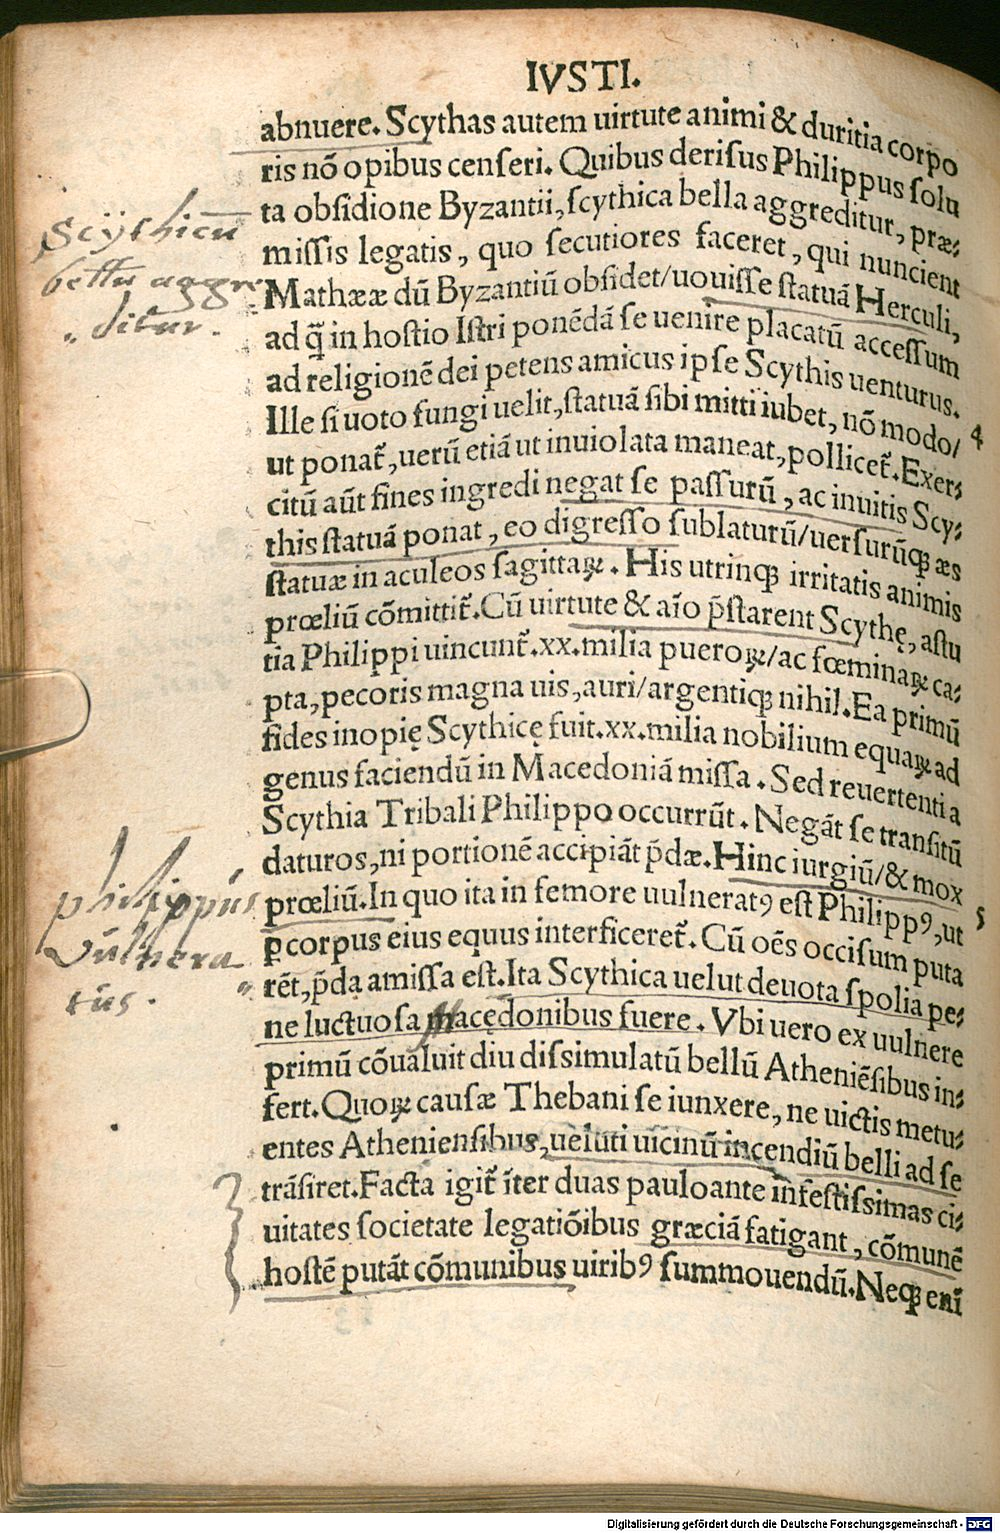 IVSTI.
abnuere. Scythas autem uirtute animi & duritia corpo
ris nõ opibus censeri. Quibus derisus Philippus solu
ta obsidione Byzantii, scythica bella aggreditur, præ⸗
missis legatis, quo secutiores faceret, qui nuncient
Mathææ dũ Byzantiũ obsidet/uouisse statuã Herculi,
ad q̃ in hostio Istri ponẽdã se uenire placatũ accessum
ad religionẽ dei petens amicus ipse Scythis uenturus.
Ille si uoto fungi uelit, statuã sibi mitti iubet, nõ modo/
4
ut ponat᷑, uerũ etiã ut inuiolata maneat, pollicet᷑. Exer⸗
citũ aũt fines ingredi negat se passurũ, ac inuitis Scy⸗
this statuã ponat, eo digresso sublaturũ/uersurũqꝫ æs
statuæ in aculeos sagittaꝝ. His utrinqꝫ irritatis animis
prœliũ cõmittit᷑. Cũ uirtute & aĩo p̃starent Scythę, astu
tia Philippi uincunt᷑. xx. milia pueroꝝ/ac fœminaꝝ ca⸗
pta, pecoris magna uis, auri/argentiqꝫ nihil. Ea primũ
fides inopię Scythicę fuit. xx. milia nobilium equaꝝ ad
genus faciendũ in Macedoniã missa. Sed reuertenti a
Scythia Tribali Philippo occurrũt. Negãt se transitũ
daturos, ni portionẽ accipiãt p̃dæ. Hinc iurgiũ/& mox
prœliũ. In quo ita in femore uulneratꝰ est Philippꝰ, ut
5
ꝑ corpus eius equus interficeret᷑. Cũ oẽs occisum puta
rẽt, p̃da amissa est. Ita Scythica uelut deuota spolia pe⸗
ne luctuosa Macędonibus fuere. Vbi uero ex uulnere
primũ cõualuit diu dissimulatũ bellũ Atheniẽsibus in⸗
fert. Quoꝝ causæ Thebani se iunxere, ne uictis metu⸗
entes Atheniensibus, ueluti uicinũ incendiũ belli ad se
trãsiret. Facta igit᷑ ĩter duas pauloante infestissimas ci⸗
uitates societate legatiõibus græciã fatigant, cõmunẽ
hostẽ putãt cõmunibus uiribꝰ summouendũ. Neqꝫ enĩ
Scÿthicũ
bellũ aggre
ditur.
philippus
Vũlnera
tũs.
Digitalisierung gefördert durch die Deutsche Forschungsgemeinschaft - DFG